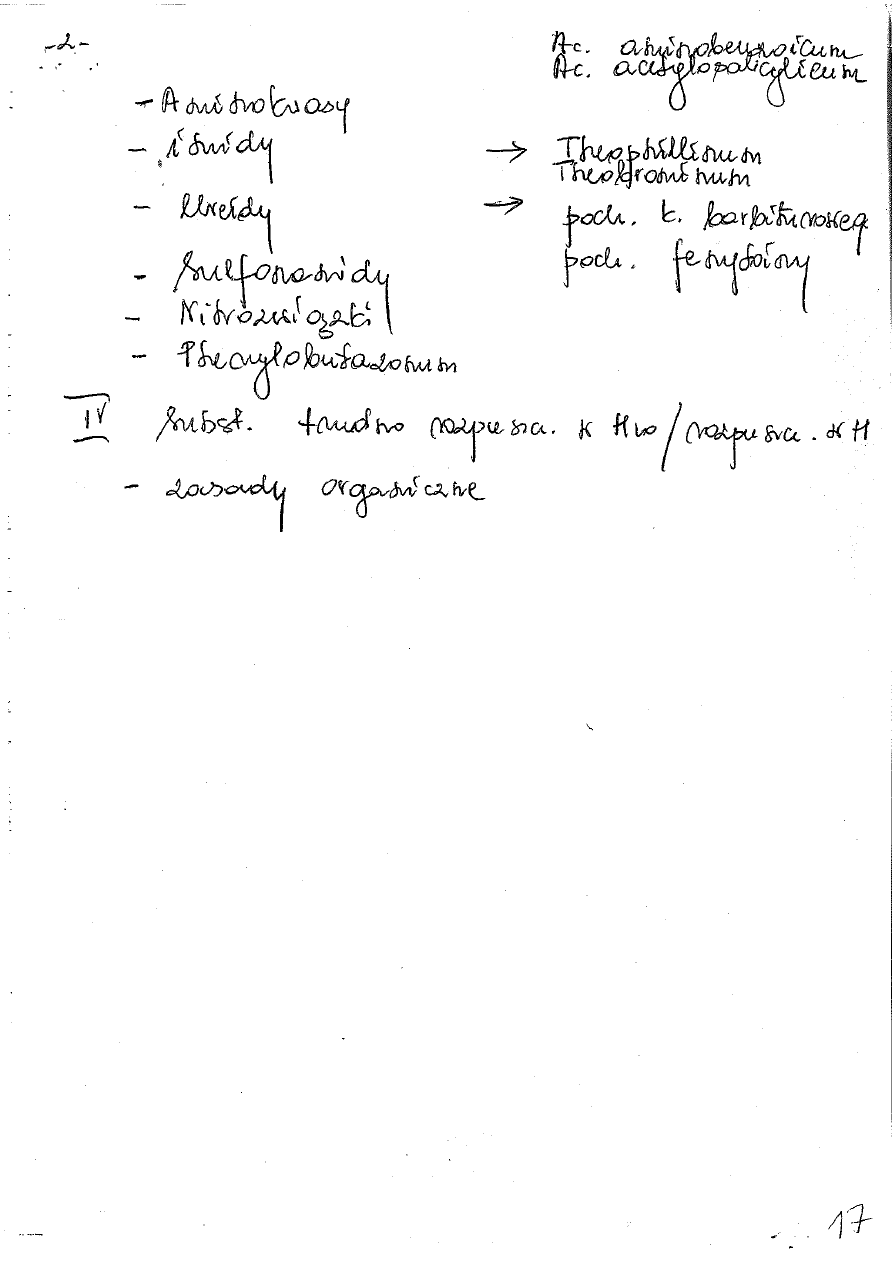 -2-
Ac. aminobenzoicum
Ac. acetylosalicylicum
- Aminokwasy
- imidy → Theophillinum
Theobrominum
- Ureidy → poch. k. barbiturowego
poch. fenytoiny
- Sulfonamidy
- Nitrozwiązki
- Phenylobutazonum
IV Subst. trudno rozpuszcz. w H₂O / rozpuszcz. w H
- zasady organiczne
17